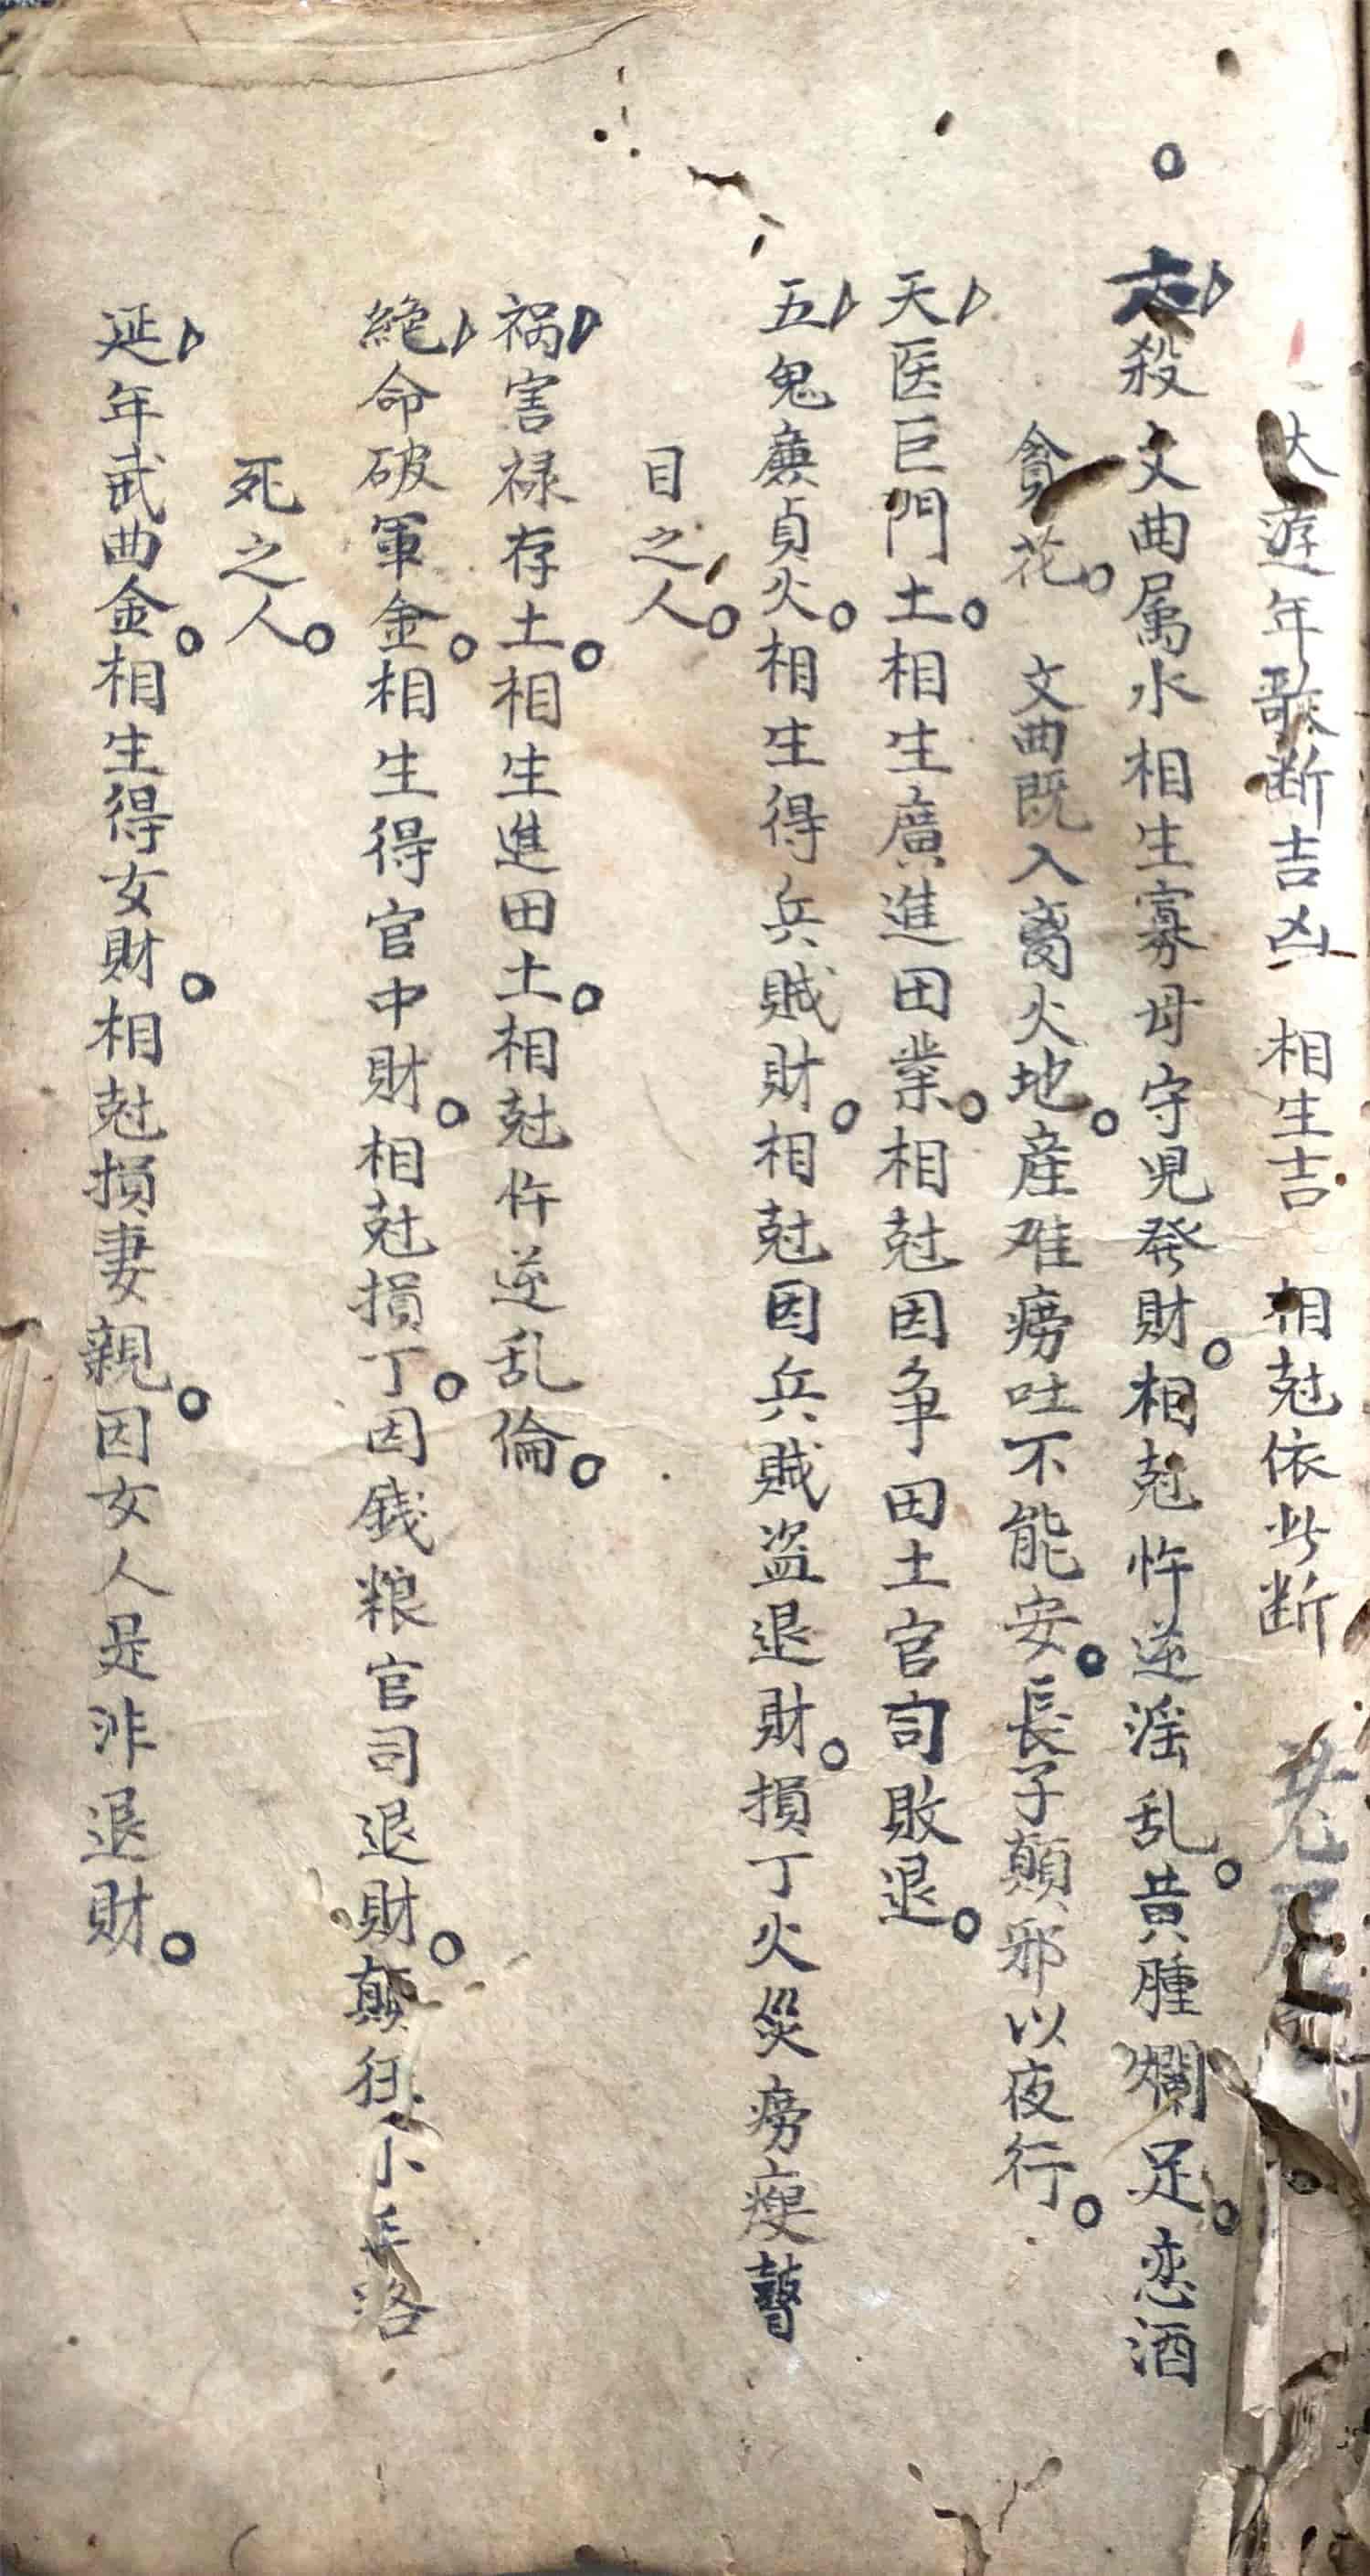 大遊年歌断吉凶 相生吉 相尅依此断
六殺文曲属水相生寡母守児発財。相尅忤逆淫乱。黄腫爛足。恋酒
貪花。 文曲既入离火地。産难痨吐不能安。長子顛邪以夜行。
天医巨門土。相生廣進田業。相尅因争田土官司敗退。
五鬼廉貞火。相生得兵贼財。相尅因兵贼盗退財。損丁火災痨瘦瞽
目之人。
祸害禄存土。相生進田土。相尅忤逆乱倫。
絶命破軍金。相生得官中財。相尅損丁。因銭粮官司退財。顛狂小
死之人。
延年武曲金。相生得女財。相尅損妻親。因女人是非退財。